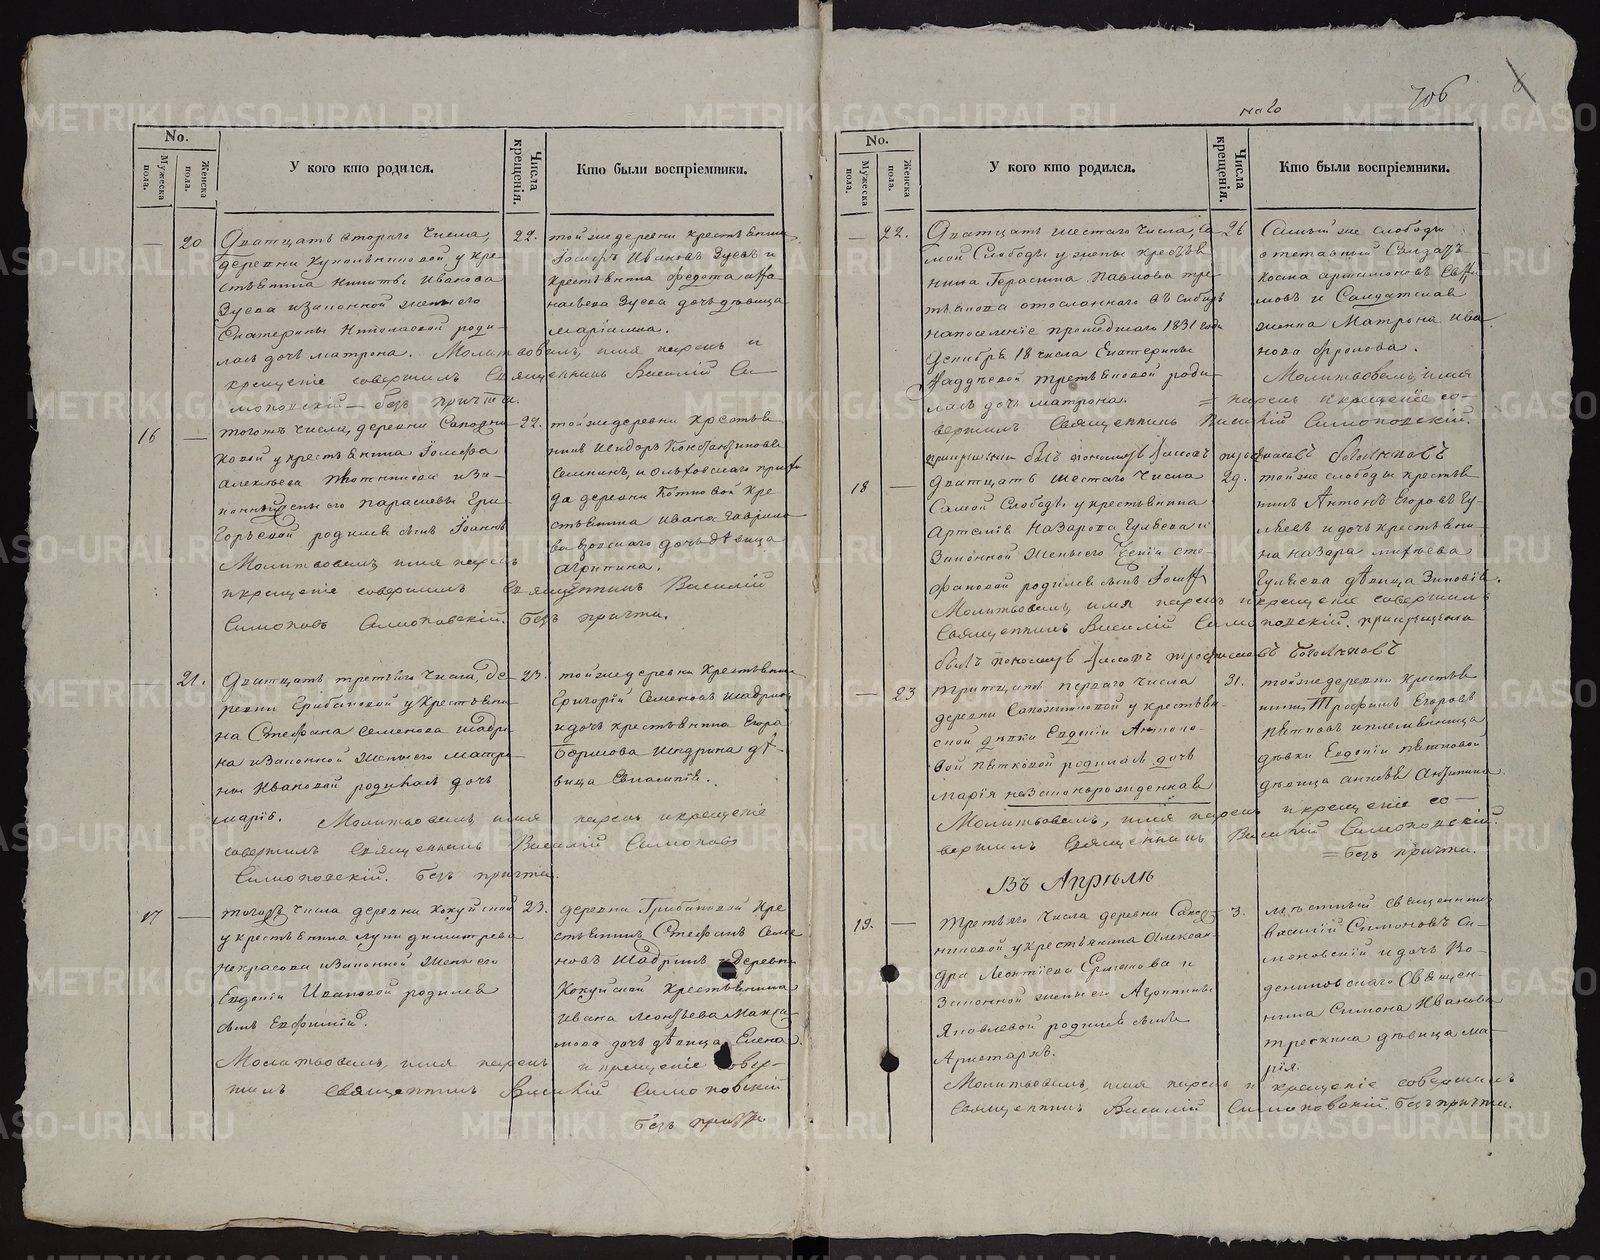 706
No.
Мужеска пола.
Женска пола.
У кого кто родился.
Числа крещенія.
Кто были воспріемники.
20
Дватцать втораго числа,
деревни Куполвниковой у кре-
стьянина Никиты Иванова
Зуева и законной жены его
Екатерины Николаевой роди-
лась дочь Матрона. Молитвовалъ, имя нарекъ и
крещеніе совершилъ Священникъ Василій Си-
моновскій — безъ причта.
22.
той же деревни крестьянинъ
Іосифъ Ивановъ Зуевъ и
крестьянина Федота Афа
насьева Зуева дочь девица
Маріамна.
16
тогожъ числа, деревни Сапожни-
ковой у крестьянина Іосифа
Алексѣева Плотникова и за-
конной жены его Парасковьи Гри-
горьевой родился сынъ Іоаннъ
Молитвовалъ, имя нарекъ
и крещеніе совершилъ Священникъ Василій
Симоновъ Симоновскій. безъ причта.
22.
той же деревни крестьян-
инъ Исидоръ Константиновъ
Семкинъ, и Ольховскаго прихо
да деревни Котковой кре
стьянина Ивана Гаврило
ва дочь девица
Агрипина.
21.
Дватцать третьяго числа, де-
ревни Грибановой у крестьяни-
на Стефана Семенова Шадри-
на и законной жены его Матро-
ны Ивановой родилась дочь
Марія. Молитвовалъ, имя нарекъ и крещеніе
совершилъ Священникъ Василій Симоновъ
Симоновскій. безъ причта.
23.
той же деревни крестьянинъ
Григорій Семеновъ Шадринъ
и дочь крестьянина Егора
Шадрина дѣ-
вица Евлампія.
17
тогожъ числа деревни Кокуйской
у крестьянина Лупа Димитрева
Некрасова и законной жены его
Евдокіи Ивановой родился
сынъ Евфимій.
Молитвовалъ, имя нарекъ и крещеніе совер-
шилъ Священникъ Василій Симоновскій
безъ причта
23.
деревни Грибановой кре
стьянинъ Стефанъ Семе
новъ Шадринъ и деревни
Кокуйской крестьянина
Ивана Леонтьева Макси
мова дочь дѣвица Елена.
No.
Мужеска пола.
Женска пола.
У кого кто родился.
Числа крещенія.
Кто были воспріемники.
22.
Дватцать шестаго числа, са
мой Слободы у жены крестья
нина Герасима Павлова Тре-
тьякова отосланнаго въ Сибирь
на поселеніе прошедшаго 1831 года
Декабря 18 числа Екатерины
Фаддѣевой Третьяковой роди-
лась дочь Матрона. = нарекъ и крещеніе со-
вершилъ Священникъ Василій Симоновскій.
при крещеніи былъ пономарь
26
Самый же слободы
отставный Салдатъ
Косма Артамоновъ
и Салдатская
жонка Матрона Ива
нова Фролова.
Молитвовалъ, имя
18
Дватцать шестаго числа
Самой Слободы у крестьянина
Артемія Назарова Гуляева и
законной жены его Ксеніи Сте-
фановой родился сынъ Іосифъ
Молитвовалъ, имя нарекъ и крещеніе совершилъ
Священникъ Василій Симоновскій. при крещеніи
былъ пономарь
29.
той же слободы крестья
нинъ Антонъ Егоровъ Гу-
ляевъ и дочь крестьяни
на Назара
Гуляева дѣвица Зиновія.
23
тритцать перваго числа
деревни Сапожниковой у крестьян-
ской дѣвки Евдокіи Антоно-
вой Пятковой родилась дочь
Марія незаконнорожденная
Молитвовалъ, имя нарекъ и крещеніе со-
вершилъ Священникъ Василій Симоновскій.
= безъ причта.
31.
той же деревни крестья
нинъ Трофимъ Егоровъ
Пятковъ и племянница
дѣвки Евдокіи Пятковой
дѣвица
Въ Апрѣлѣ
19.
Третьяго числа деревни Сапож-
никовой у крестьянина Алексан-
дра Леонтіева Ермакова и
законной жены его Агрипины
Яковлевой родился сынъ
Аристархъ.
Молитвовалъ, имя нарекъ и крещеніе совершилъ
Священникъ Василій Симоновскій. безъ причта.
3.
мѣстный священникъ
Василій Симоновъ Си-
моновскій и дочь
Священ-
ника Симона Иванова
дѣвица Ма-
рія.